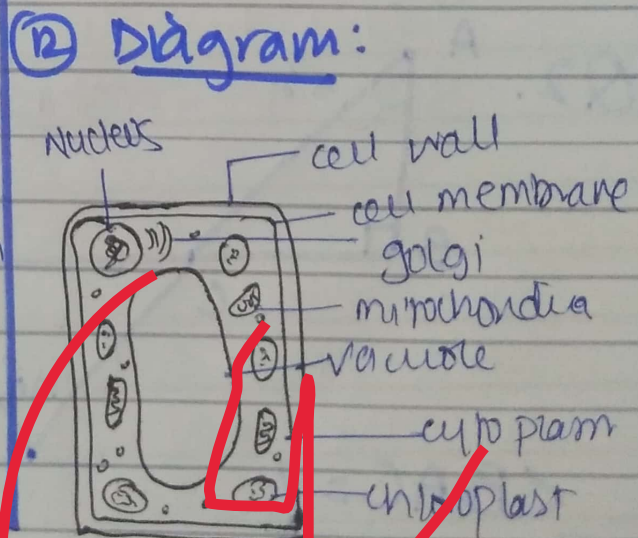 12 Diagram:
Nucleus
cell wall
cell membrane
golgi
mitochondia
vacuole
cytoplasm
chloroplast